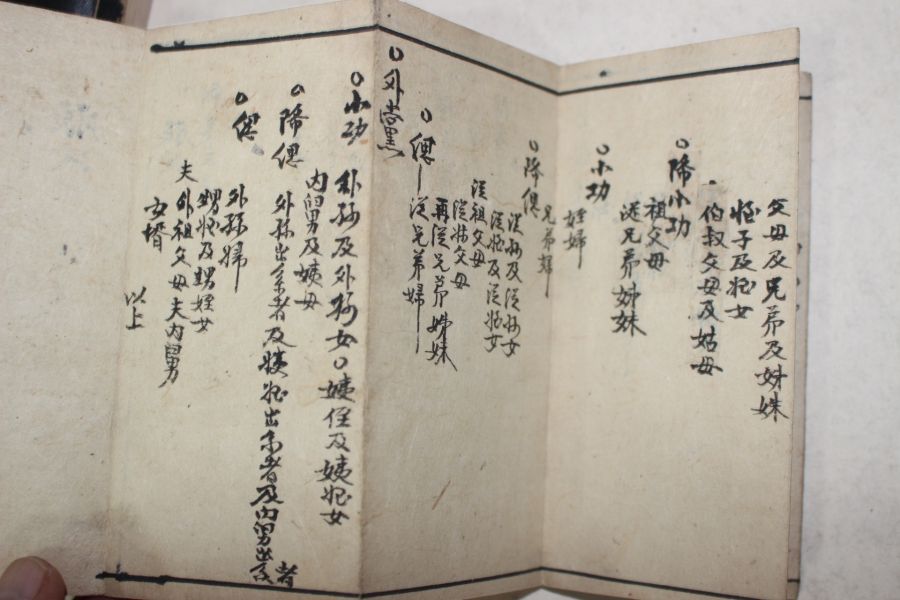 父母及兄弟及姉妹
姪子及姪女
伯叔父母及姑母
○降小功
祖父母
從兄弟姊妹
○小功
姪婦
兄弟婦
○降緦
從孫及從孫女
從姪及從姪女
從祖父母
從叔父母
再從兄弟姊妹
從兄弟婦
○緦
○外黨
○小功
外孫及外孫女○姨侄及姨姪女
内舅及姨母
○降緦
外孫出系者及姨姪出系者及内舅出系者
○緦
外孫婦
甥姪及甥姪女
夫外祖父母夫内舅
女婿
以上